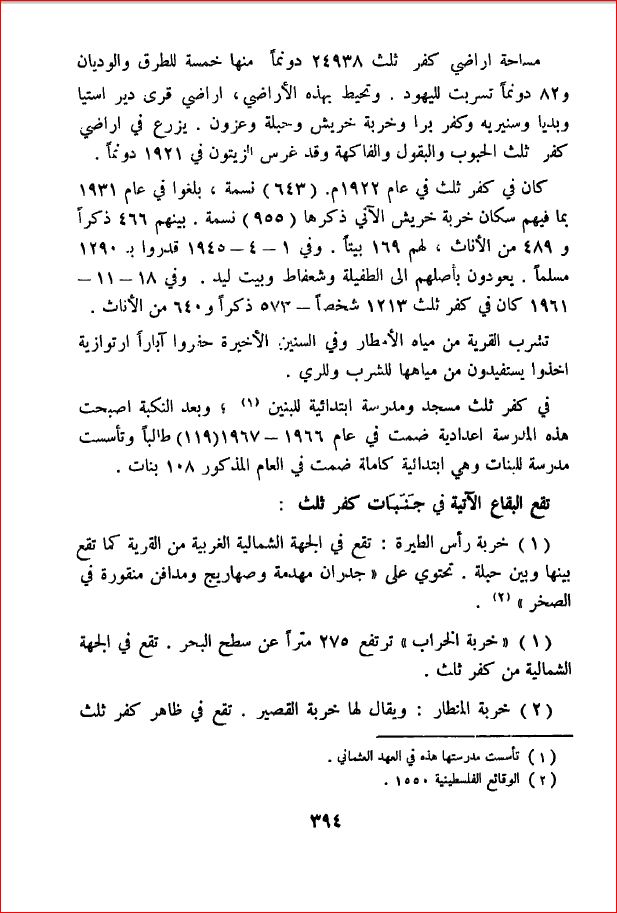 مساحة اراضي كفر ثلث ٢٤٩٣٨ دونماً منها خمسة للطرق والوديان
و٨٢ دونماً تسربت لليهود . وتحيط بهذه الأراضي، اراضي قرى دير استيا
وبديا وسنيريه وكفر برا وخربة خريش وحبلة وعزون . يزرع في اراضي
كفر ثلث الحبوب والبقول والفاكهة وقد غرس الزيتون في ١٩٢١ دونماً .
كان في كفر ثلث في عام ١٩٢٢م. (٦٤٣) نسمة ، بلغوا في عام ١٩٣١
بما فيهم سكان خربة خريش الآتي ذكرها (٩٥٥) نسمة . بينهم ٤٦٦ ذكراً
و ٤٨٩ من الأناث ، لهم ١٦٩ بيتاً . وفي ١ – ٤ – ١٩٤٥ قدروا بـ ١٢٩٠
مسلماً . يعودون بأصلهم الى الطفيلة وشعفاط وبيت ليد . وفي ١٨ – ١١ –
١٩٦١ كان في كفر ثلث ١٢١٣ شخصاً – ٥٧٣ ذكراً و٦٤٠ من الأناث .
تشرب القرية من مياه الأمطار وفي السنين الأخيرة حفروا آباراً ارتوازية
اخذوا يستفيدون من مياهها للشرب وللري .
في كفر ثلث مسجد ومدرسة ابتدائية للبنين (١) ؛ وبعد النكبة اصبحت
هذه المدرسة اعدادية ضمت في عام ١٩٦٦ – ١٩٦٧ (١١٩) طالباً وتأسست
مدرسة للبنات وهي ابتدائية كاملة ضمت في العام المذكور ١٠٨ بنات .
تقع البقاع الآتية في جَنَبَات كفر ثلث :
(١) خربة رأس الطيرة : تقع في الجهة الشمالية الغربية من القرية كما تقع
بينها وبين حبلة . تحتوي على « جدران مهدمة وصهاريج ومدافن منقورة في
الصخر » (٢) .
(١) « خربة الخراب » ترتفع ٢٧٥ متراً عن سطح البحر . تقع في الجهة
الشمالية من كفر ثلث .
(٢) خربة المنطار : ويقال لها خربة القصير . تقع في ظاهر كفر ثلث
(١) تأسست مدرستها هذه في العهد العثماني .
(٢) الوقائع الفلسطينية ١٥٥٠ .
٣٩٤